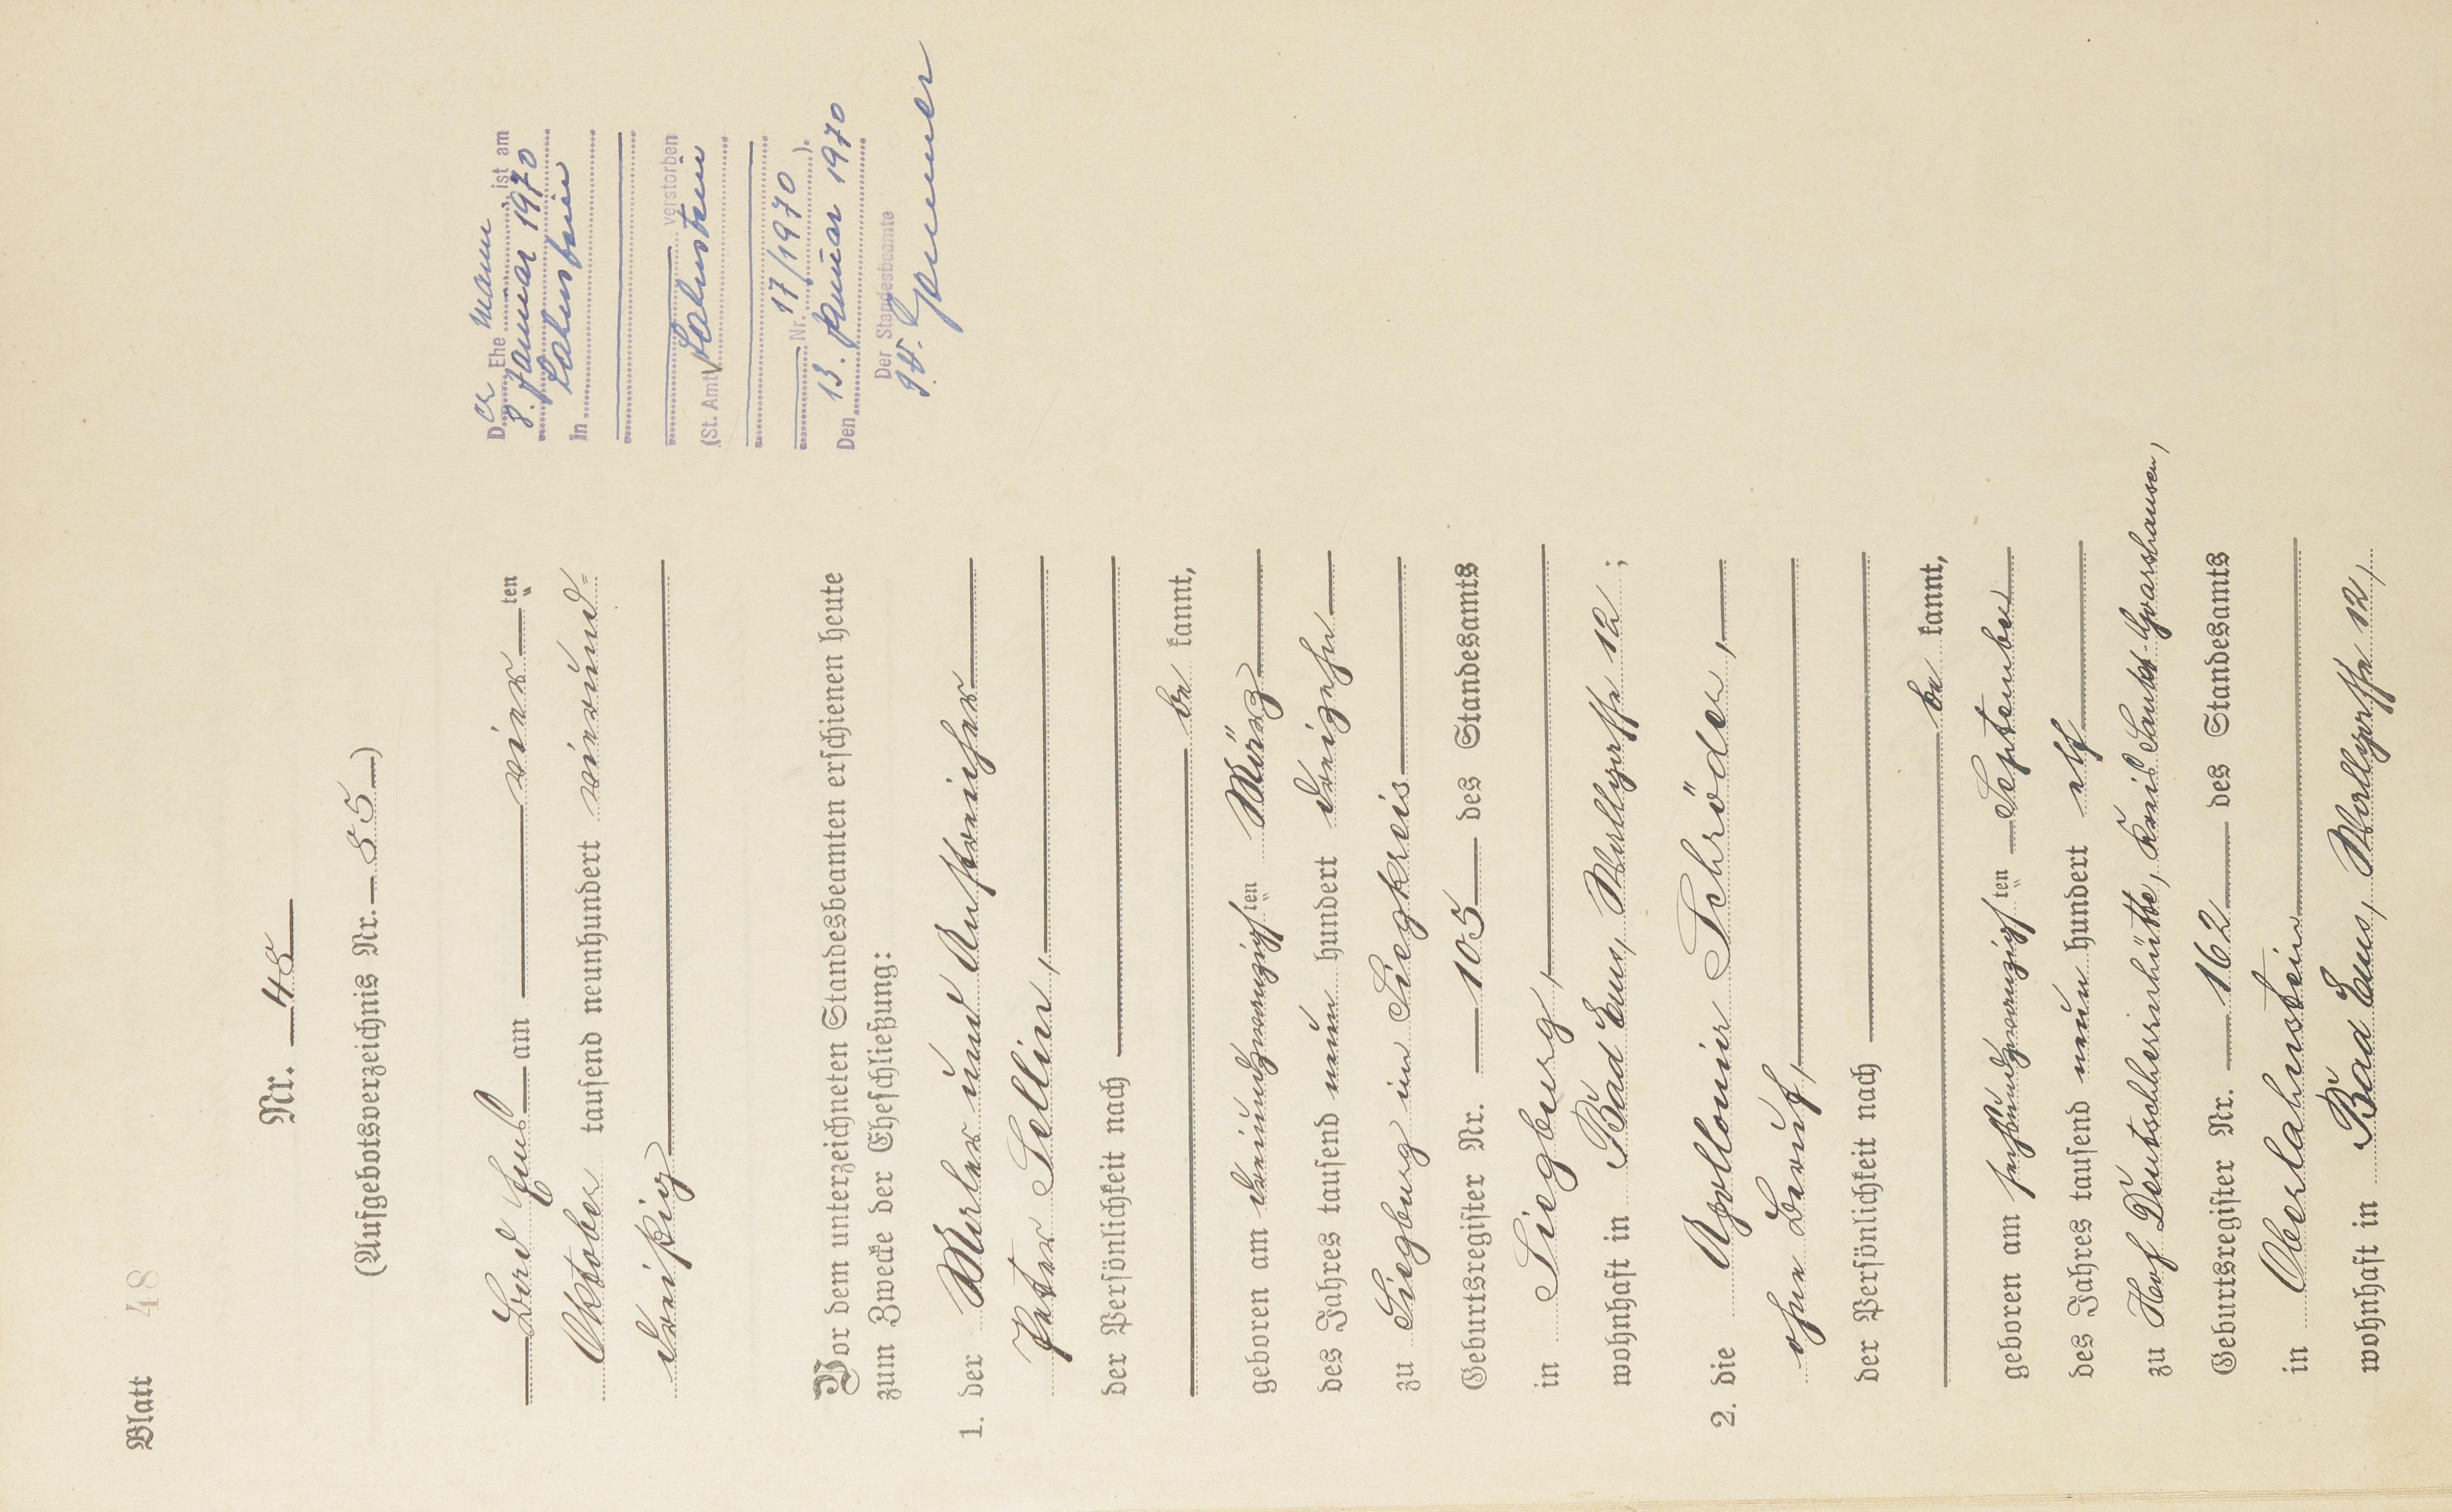 Blatt 48
Nr. 48
(Aufgebotsverzeichnis Nr. 85)
Bad Ems am vier ten
Oktober tausend neunhundert vierund=
dreißig
Vor dem unterzeichneten Standesbeamten erschienen heute
zum Zwecke der Eheschließung:
1. der Maler und Anstreicher
Peter Sellin,
der Persönlichkeit nach
be kannt,
geboren am dreiundzwanzigsten März
des Jahres tausend neun hundert dreizehn
zu Siegburg im Siegkreis
Geburtsregister Nr. 105 des Standesamts
in Siegburg,
wohnhaft in Bad Ems, Wallgasse 12;
2. die Apollonia Schröder,
ohne Beruf,
der Persönlichkeit nach
be kannt,
geboren am sechsundzwanzigsten September
des Jahres tausend neun hundert elf
zu Hof Deutschherrnhütte, Kreis Sankt-Goarshausen,
Geburtsregister Nr. 162 des Standesamts
in Oberlahnstein
wohnhaft in Bad Ems, Wallgasse 12,
Der Ehe mann ist am
8. Januar 1970
in Lahnstein
verstorben
(St. Amt Lahnstein
Nr. 17/1970).
Den 13. Januar 1970
Der Standesbeamte